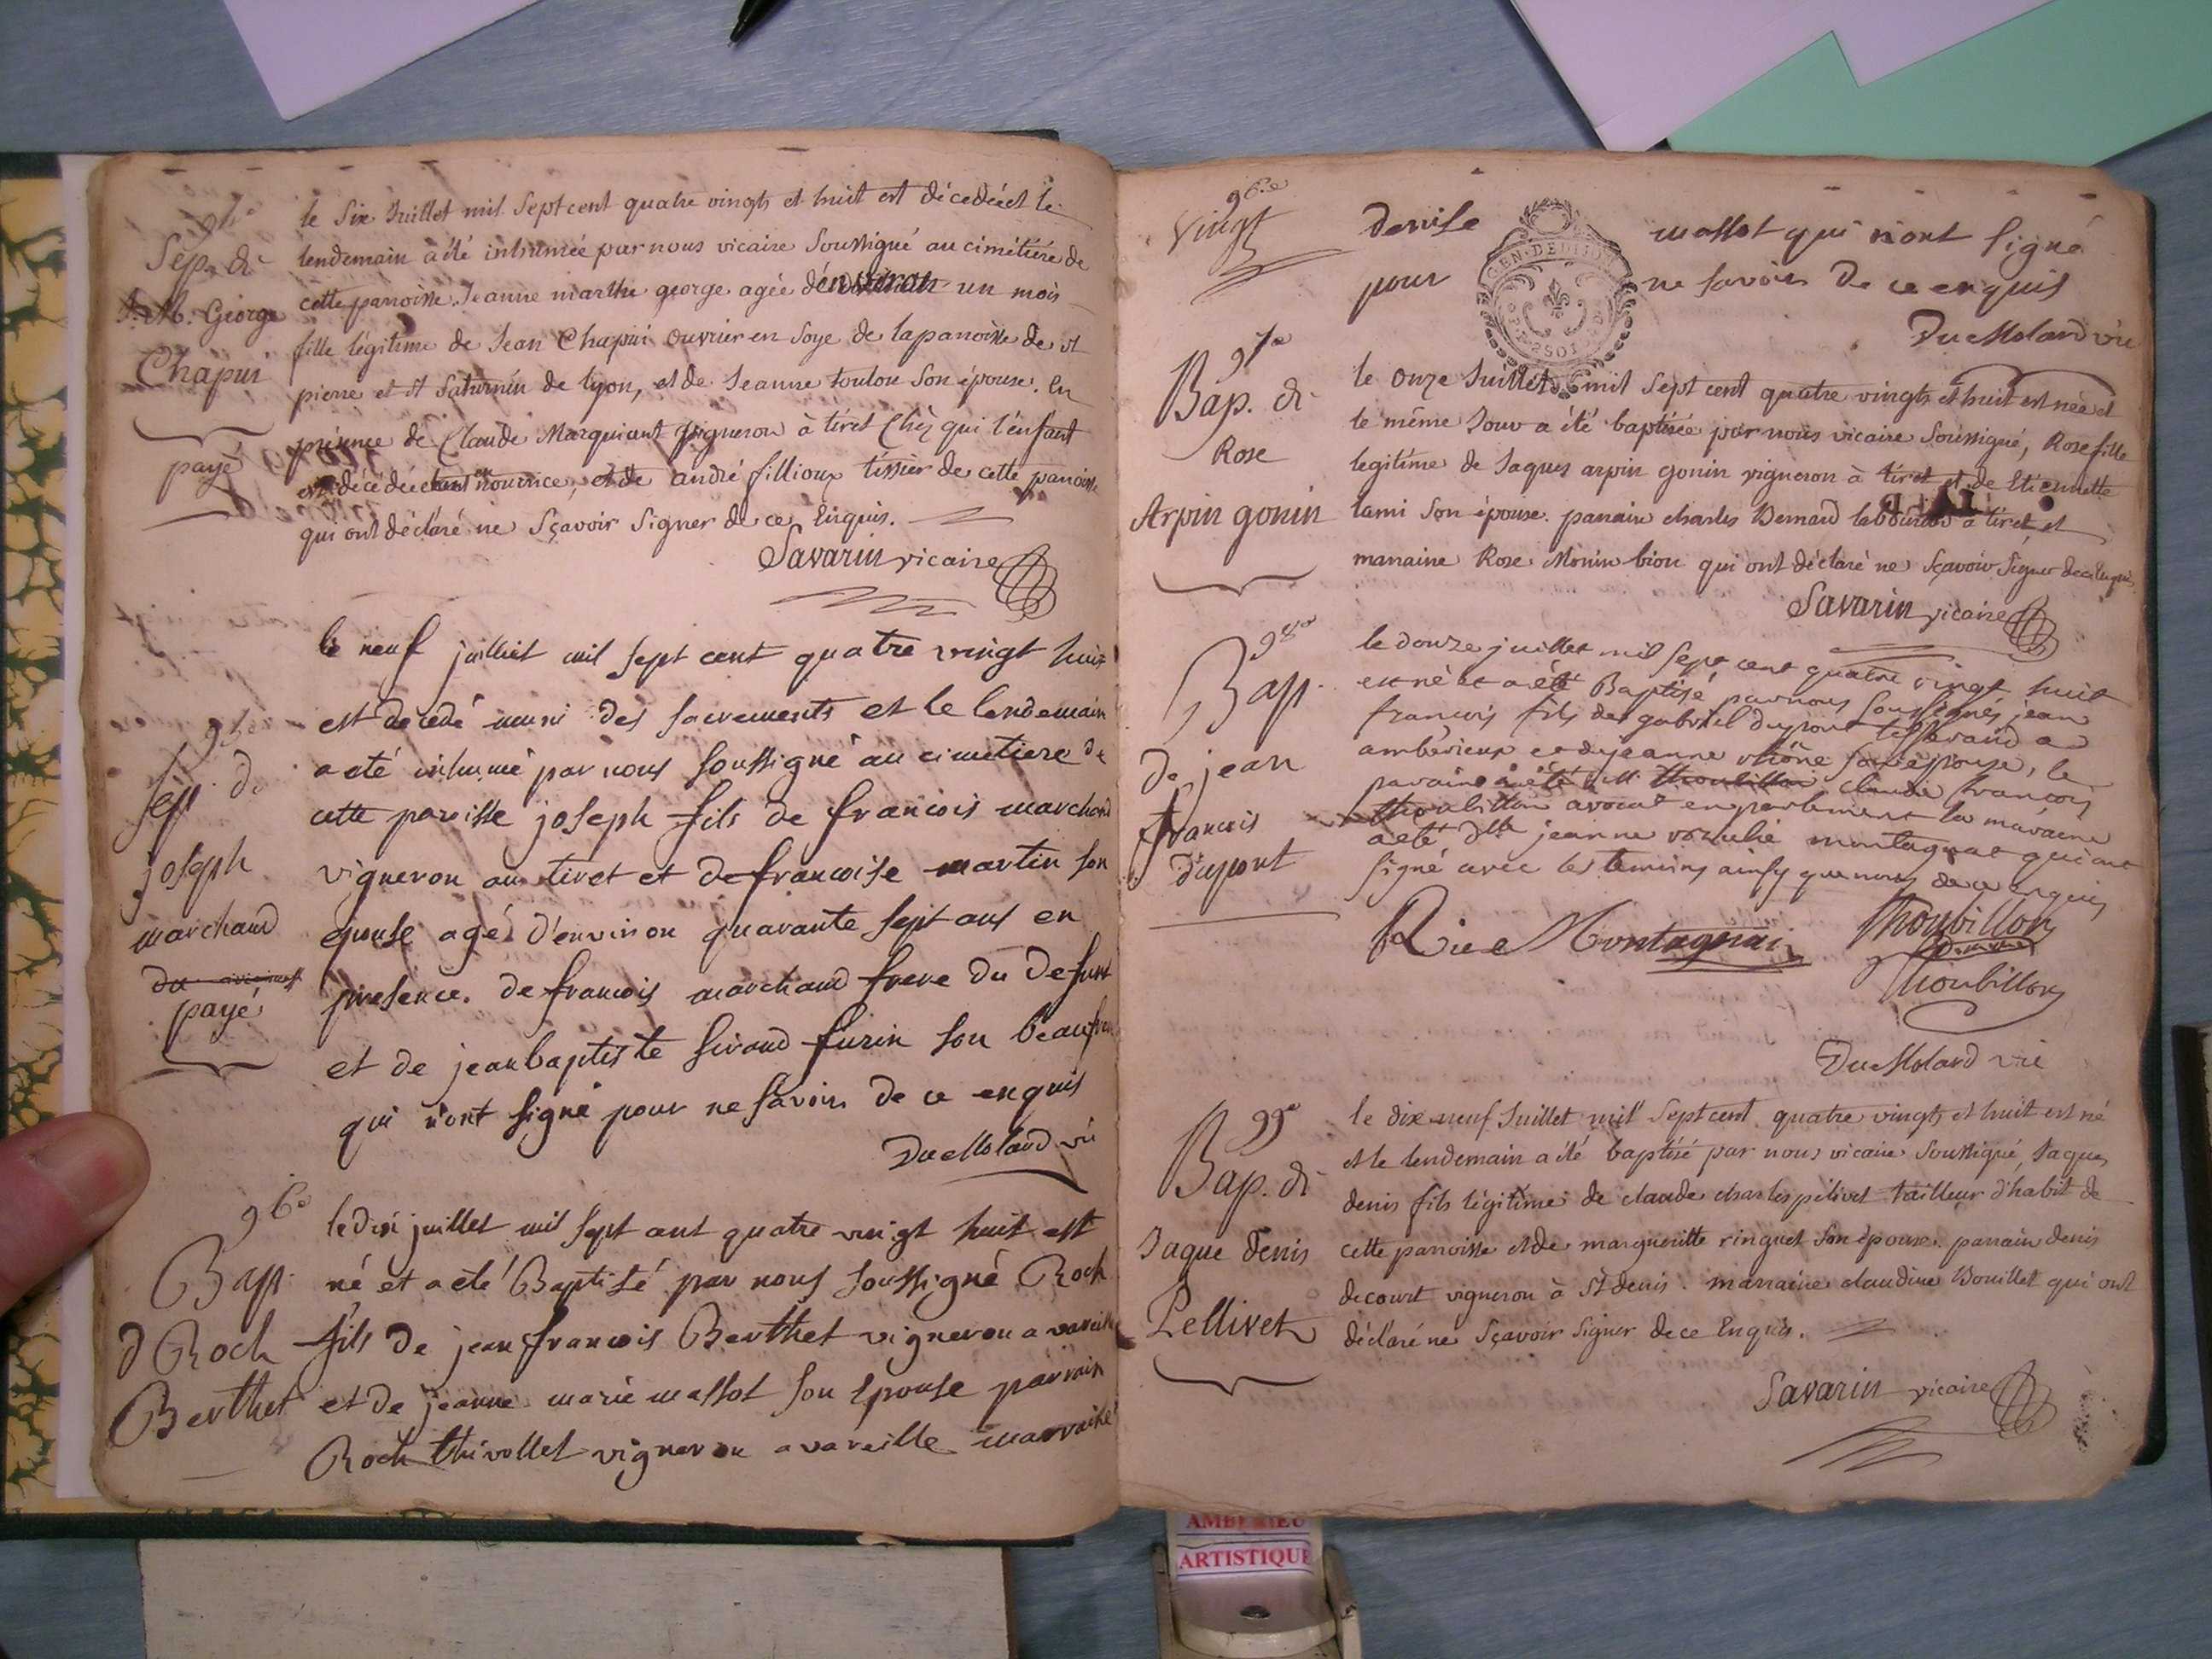 94e
Sép. de
J. M. George
Chapui
payé
le Six Juillet mil Sept cent quatre vingts et huit est décedéeet le
lendemain a été inhumée par nous vicaire Soussigné au cimétiére de
cette parroisse. Jeanne marthe george agée d'environ un mois
fille légitime de Jean Chapui Ouvrier en Soye de la parroisse de st
pierre et st Saturnin de lyon, et de Jeanne toulou Son épouse. En
présence de Claude Marquiant vigneron à tiret Chéz qui l'enfant
est décédée en nourrice, et de andré fillioux tissier de cette parroisse
qui ont déclaré ne Sçavoir Signer de ce Enquis.
Savarin vicaire
95e
Sep. de
joseph
marchand
payé
le neuf juilliet mil sept cent quatre vingt huit
est decedé muni des sacrements et le lendemain
a eté inhumé par nous soussigné au cimetiere de
cette paroisse joseph fils de francois marchand
vigneron au tiret et de francoise martin son
epouse agé d'environ quarante sept ans en
presence de francois marchand frere du defunt
et de jean baptiste sivand furin son beaufrere
qui n'ont signé pour ne savoir de ce enquis
DuMolard vic
96e
Bap.
d Roch
Berthet
le dix juillet mil sept cent quatre vingt huit est
né et a eté Baptisé par nous soussigné Roch
fils de jean francois Berthet vigneron a vareille
et de jeanne marie massot son epouse parrain
Roch thivollet vigneron a vareille marraine
96.e
Vingt
denise massot qui n'ont signé
pour ne savoir de ce enquis
GEN. DE DIJON
DuMolard vic
97e
Bap. de
Rose
Arpin gonin
le Onze Juillet mil Sept cent quatre vingts et huit est née et
le même Jour a été baptisée par nous vicaire Soussigné, Rose fille
legitime de Jaques arpin gonin vigneron à tiret et de Etiennette
lami Son épouse. parrain charles Bernard laboureur à tiret et
marraine Rose Monin bion qui ont déclaré ne Sçavoir Signer de ce Enquis
Savarin vicaire
98e
Bap.
de jean
francois
dupont
le douze juillet mil sept cent quatre vingt huit
est né et a eté Baptisé par nous soussignés jean
francois fils de gabriel dupont tisserand a
ambérieux et de jeanne rhône son epouse, le
parain a eté M. thoubillon claude francois
thoubillon avocat en parlement la maraine
a eté dlle jeanne rosalie montagnat qui ont
signé avec les temoins ainsy que nous de ce enquis
Rive Montagnat Thoubillon
Thoubillon
DuMolard vic
99e
Bap. de
Jaque Denis
Pellivet
le dix neuf Juillet mil Sept cent quatre vingts et huit est né
et le lendemain a été baptisé par nous vicaire Soussigné, Jaques
denis fils légitime de claude charles pélivet tailleur d'habit de
cette parroisse et de margueritte ringuet Son épouse. parrain denis
decourt vigneron à St denis. marraine claudine Bouillet qui ont
déclaré ne Sçavoir Signer de ce Enquis.
Savarin vicaire
AMBERIEU
ARTISTIQUE